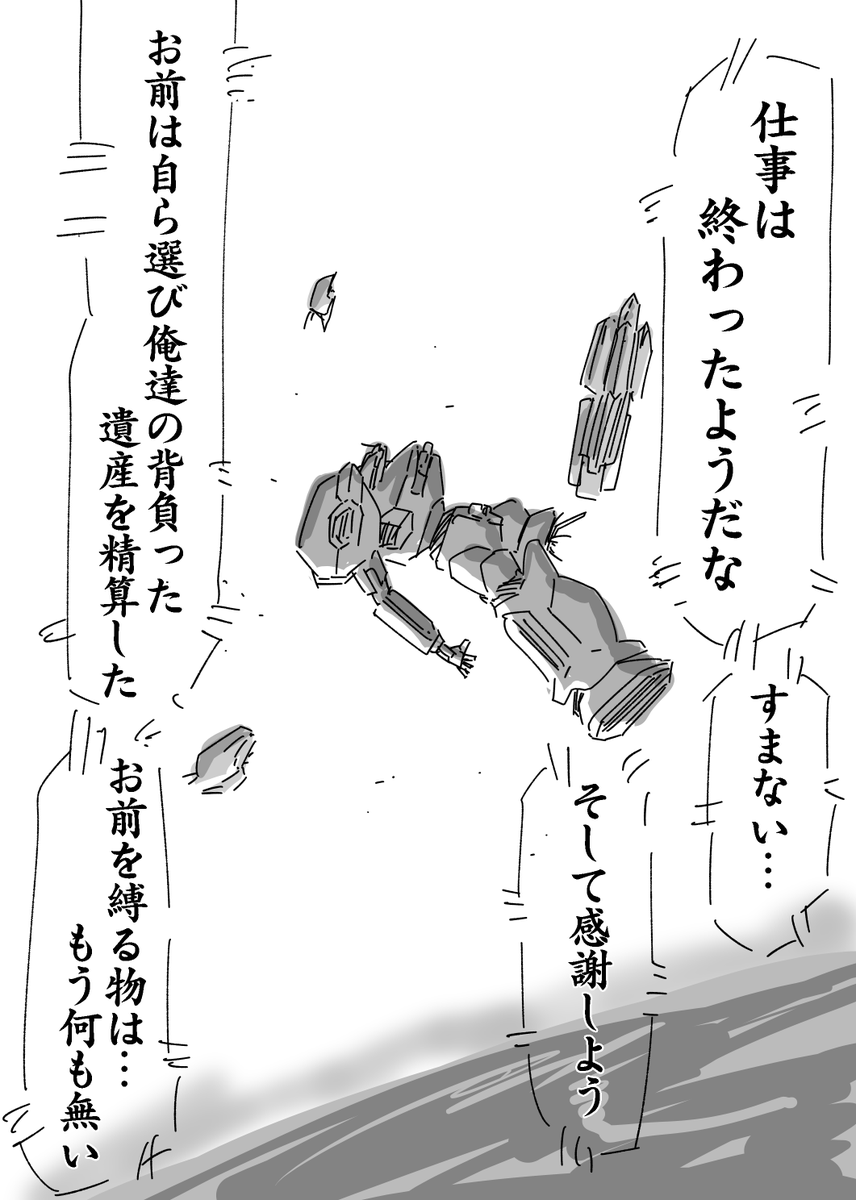 仕事は
終わったようだな
すまない…
そして感謝しよう
お前は自ら選び俺達の背負った
遺産を精算した
お前を縛る物は…
もう何も無い